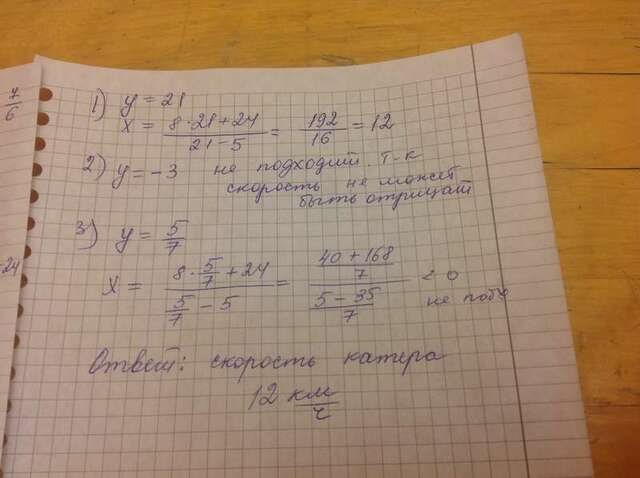 7/6
1) y = 21
x = (8·21+24)/(21-5) = 192/16 = 12
2) y = -3 не подходит. т-к
скорость не может
быть отрицат
3) y = 5/7
x = (8·5/7+24)/(5/7-5) = ((40+168)/7)/((5-35)/7) < 0
не
24
Ответ: скорость катера
12 км/ч